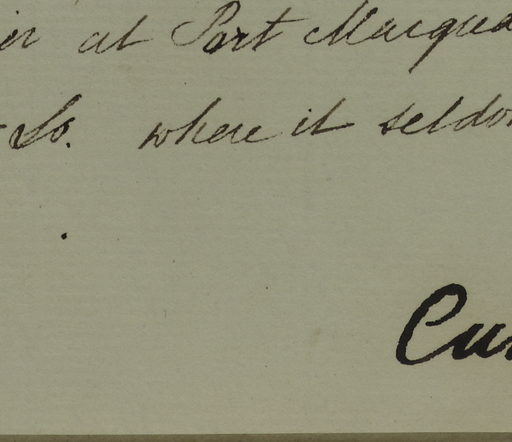 at Port Macqua
So. where it seldo
Cu